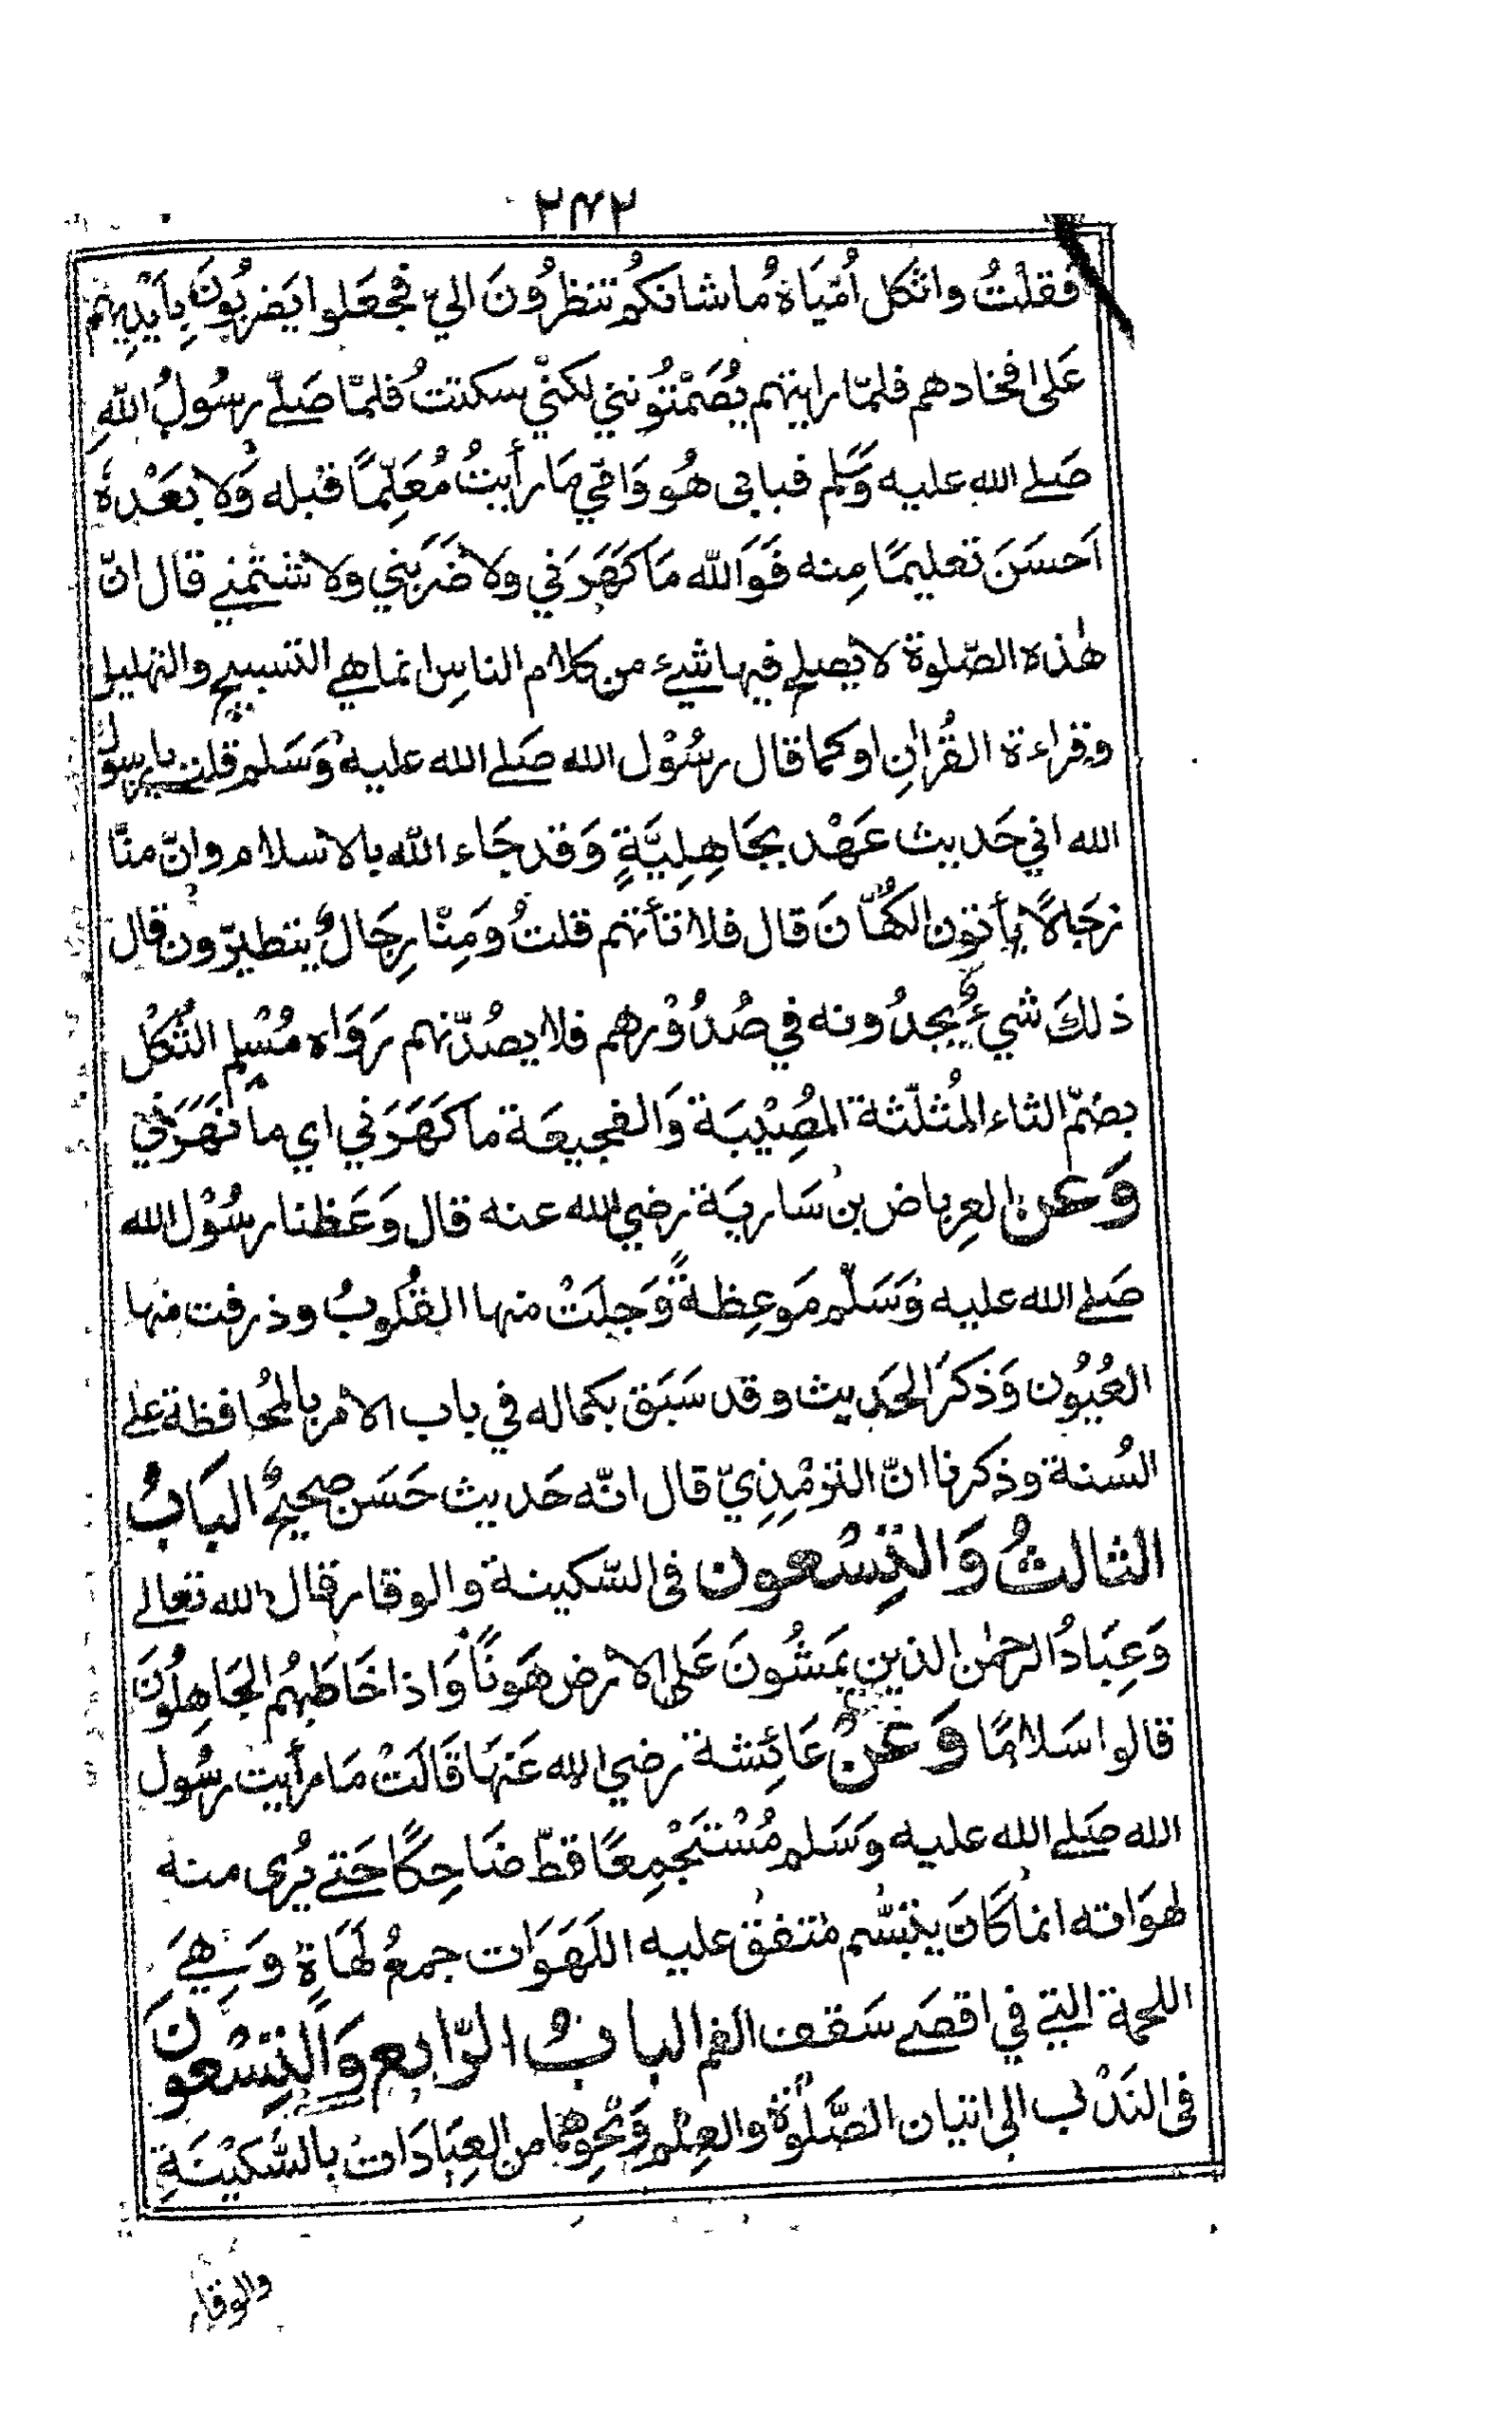 ٢٤٢
فقلْتُ واثكل اُمّيَاهُ ما شانكُم تنظرُونَ اليّ فجعَلوا يَضربُونَ بِاَيْدِيهم
عَلى افخادهم فلمّا رايتهم يُصَمْتُونني لكنّي سكتتُ فلمّا صَلّے رسُولُ اللهِ
صَلے الله عليه وَسَّلم فبابى هُو وَاُمّي مَا رأيتُ مُعَلِّمًا قبله وَلا بَعْدهُ
اَحسَنَ تعليمًا مِنه فَوَالله مَا كَهَرَني ولا ضَرَبَني ولا شتمنے قال انّ
هٰذه الصّلوة لا يصلح فيها شيء من كلام الناسِ انما هي التسبيح والتهليل
وقراءة القُرانِ اوكما قال رسُوْل الله صَلے الله عليه وَسَلم قلت يا رسول
الله اني حَديث عَهْد بجَاهِلِيَّةٍ وَقد جَاء الله بالاسلام وانّ منّا
رجَالًا يأتون الكُهّانَ قال فلا تأتهم قلتُ وَمِنّا رِجَالٌ يتطيرّون قال
ذلكَ شيءٌ يجدُونه في صُدُوْرهم فلا يصُدّنهم رَوَاه مُسْلم الثُكْل
بِضمّ الثاء المُثلّثة المُصِيْبَة وَالفجيعَة ما كَهَرَني اي ما نَهَرَني
وَعن العِرباض بن سَاريَة رضي الله عنه قال وَعَظنا رسُوْل الله
صَلے الله عليه وَسَلّم مَوعِظةً وَجِلَتْ منها القُلُوبُ وذرفت منها
العُيُون وَذكرَ الحَديث وقد سَبَق بكماله في باب الامر بالمُحافظة على
السُنة وذكرنا انّ التوْمِذِيّ قال انّه حَديث حَسَن صحيحٌ البَابُ
الثالثُ وَالتِسْعون فى السّكينة والوقار قال الله تعالى
وَعِبَادُ الرحمٰن الذين يَمشُونَ عَلى الارض هَونًا وَاذا خَاطَبهُم الجَاهِلُونَ
قالوا سَلامًا وَعَنْ عَائِشة رضي الله عَنهَا قَالَتْ مَا رأيت رسُول
الله صَلے الله عليه وَسَلم مُسْتَجْمِعًا قطّ ضَاحِكًا حَتے يُرى منه
لهوَاته انما كَانَ يتبسَّم متفق عليه اللَهَوَات جمعُ لَهَاةٍ وَهِيَ
اللحمة التي في اقصَے سَقف الفم البابُ الرّابع وَالتِسْعونَ
فى النَدْب الى اتيان الصَّلوٰة والعِلْم وَنحْوهما من العِبَادَات بالسَّكيْنَةِ
والوقار